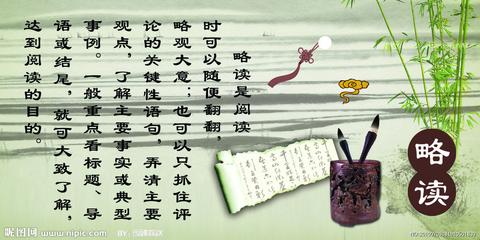 略读是阅读
时可以随便翻翻，
略观大意；也可以只抓住评
论的关键性语句，弄清主要
观点，了解主要事实或典型
事例。一般重点看标题、导
语或结尾，就可大致了解，
达到阅读的目的。
略读
昵图网 www.nipic.com